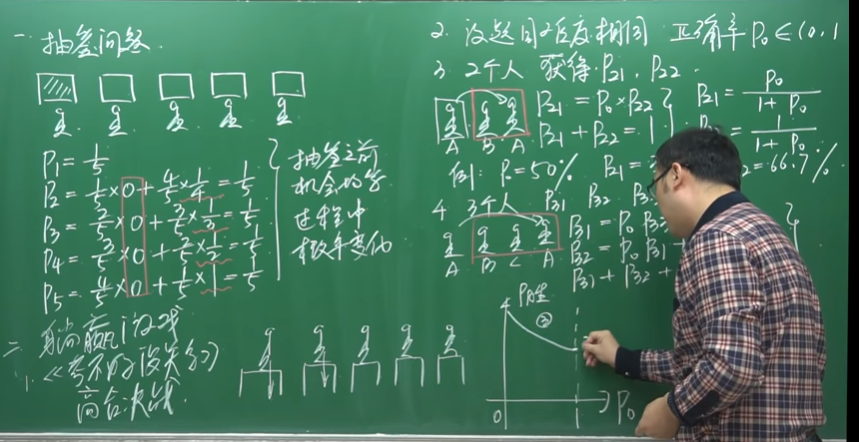 一. 抽签问题.
P₁ = 1/5
P₂ = 1/5 × 0 + 4/5 × 1/4 = 1/5
P₃ = 2/5 × 0 + 3/5 × 1/3 = 1/5
P₄ = 3/5 × 0 + 2/5 × 1/2 = 1/5
P₅ = 4/5 × 0 + 1/5 × 1 = 1/5
抽签之前
机会均等
过程中
概率变化
二. 躺赢游戏
1.
高台决战.
2. 没题目 相同 正确率 P₀ ∈ (0, 1
3. 2个人 获得 P₂₁, P₂₂.
A B A
P₂₁ = P₀ × P₂₂
P₂₁ + P₂₂ = 1
P₂₁ = P₀ / (1 + P₀)
= 1 / (1 + P₀)
例: P₀ = 50% P₂₁ =
= 66.7%
4. 3个人 P₃₁ P₃₂
A B C A
P₃₁ = P₀ P₃
P₃₂ = P₀ P₃₁ +
P₃₁ + P₃₂ +
②
0 1 P₀